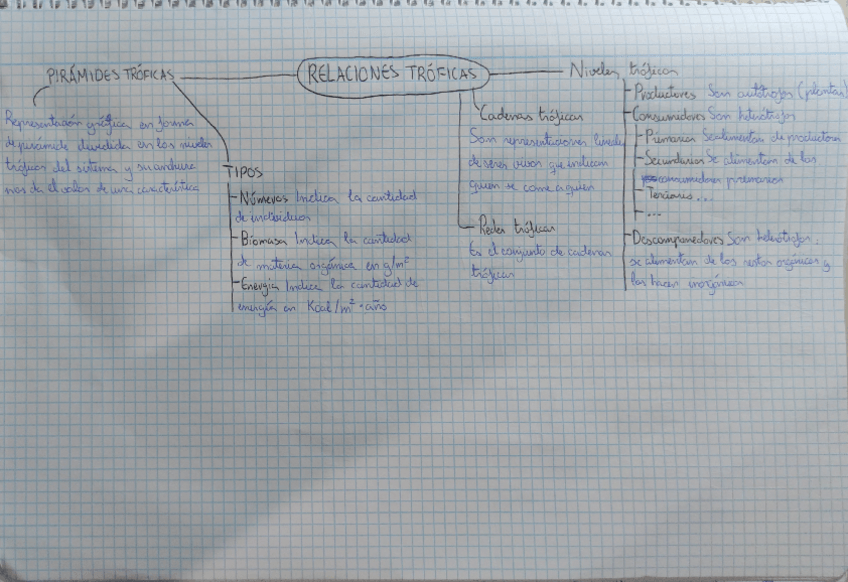 RELACIONES TRÓFICAS
PIRÁMIDES TRÓFICAS
Representación gráfica en forma
de pirámide dividida en los niveles
tróficos del sistema y su anchura
nos da el valor de una característica
TIPOS
Números Indica la cantidad
de individuos
Biomasa Indica la cantidad
de materia orgánica en g/m²
Energía Indica la cantidad de
energía en Kcal/m² · año
Cadenas tróficas
Son representaciones lineales
de seres vivos que indican
quien se come a quien
Redes tróficas
Es el conjunto de cadenas
tróficas
Niveles tróficos
Productores Son autótrofos (plantas)
Consumidores Son heterótrofos
Primarios Se alimentan de productores
Secundarios Se alimentan de los
consumidores primarios
Terciarios ...
...
Descomponedores Son heterótrofos,
se alimentan de los restos orgánicos y
los hacen inorgánicos